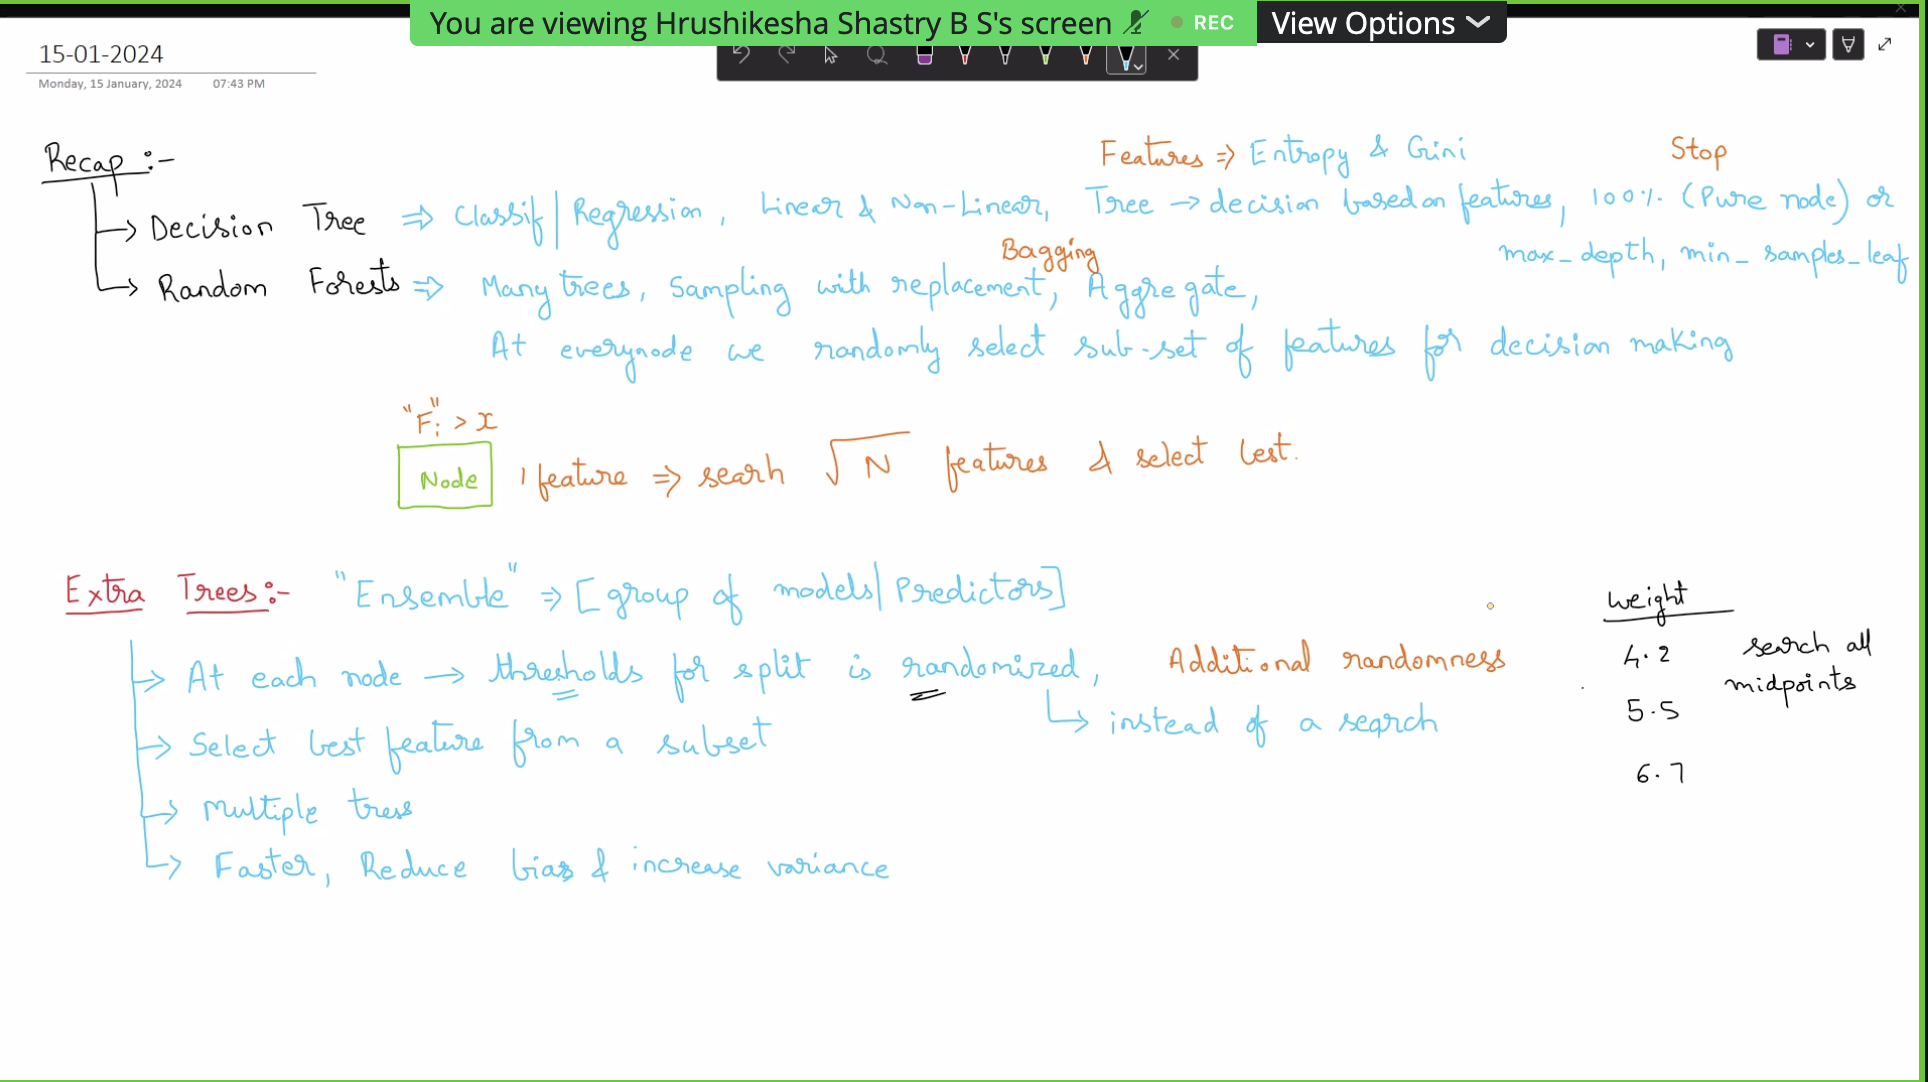 You are viewing Hrushikesha Shastry B S's screen REC View Options
15-01-2024
Monday, 15 January, 2024 07:43 PM
Recap :-
Features ⇒ Entropy & Gini Stop
→ Decision Tree ⇒ Classif | Regression, Linear & Non-Linear, Tree → decision based on features, 100% (Pure node) or
max_depth, min_samples_leaf
Bagging
→ Random Forests ⇒ Many trees, Sampling with replacement, Aggregate,
At everynode we randomly select sub-set of features for decision making
"Fi" > x
Node 1 feature ⇒ searh √N features & select best.
Extra Trees :- "Ensemble" ⇒ [group of models | Predictors]
→ At each node → thresholds for split is randomized, Additional randomness
↳ instead of a search
→ Select best feature from a subset
→ Multiple tress
→ Faster, Reduce bias & increase variance
weight
4.2 search all
midpoints
5.5
6.7